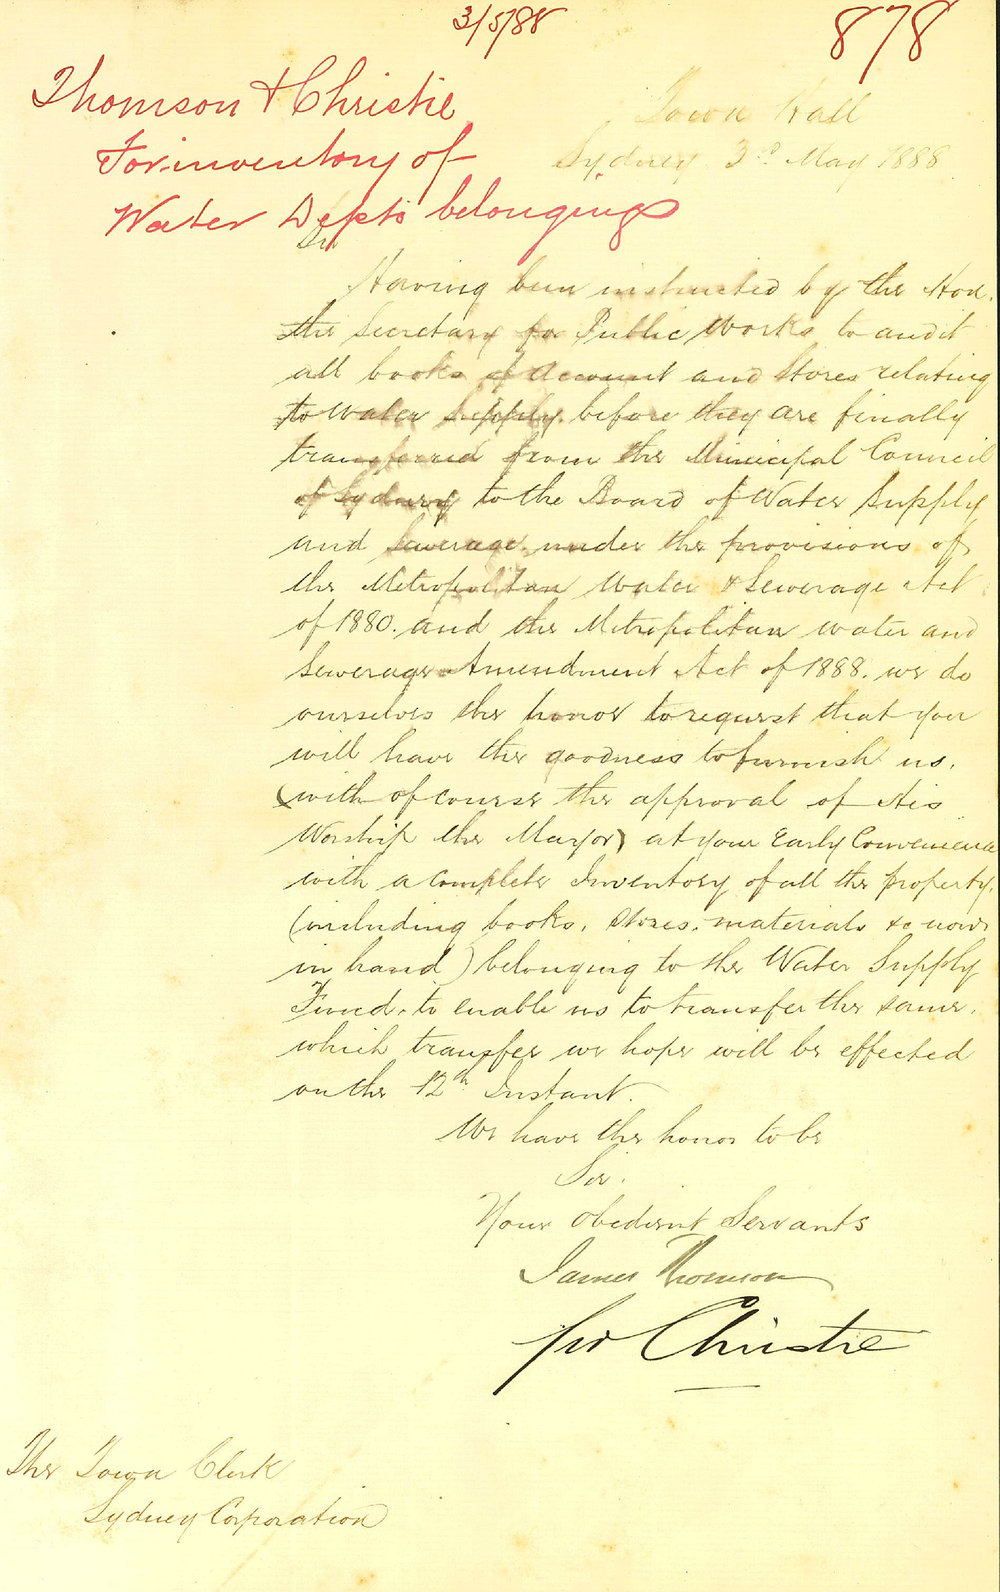 3/5/88
878
Thomson & Christie
For inventory of
Water Depts belongings
Town Hall
Sydney 3rd May 1888
Sir
Having been instructed by the Hon.
the Secretary for Public Works to audit
all books of Account and Stores relating
to Water Supply before they are finally
transferred from the Municipal Council
of Sydney to the Board of Water Supply
and Sewerage, under the provisions of
the Metropolitan Water & Sewerage Act
of 1880. and the Metropolitan Water and
Sewerage Amendment Act of 1888. we do
ourselves the honor to request that you
will have the goodness to furnish us.
(with of course the approval of His
Worship the Mayor) at your Early Convenience
with a complete Inventory of all the property.
(including books, stores, materials &c now
in hand) belonging to the Water Supply
Fund, to enable us to transfer the same.
which transfer we hope will be effected
on the 12th Instant.
We have the honor to be
Sir.
Your Obedient Servants
James Thomson
Christie
The Town Clerk
Sydney Corporation